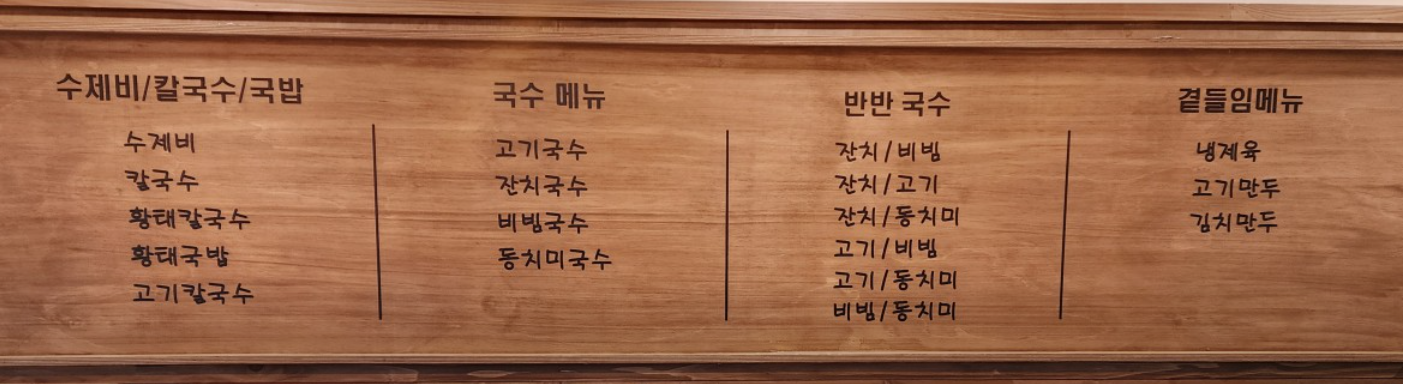 수제비/칼국수/국밥
수제비
칼국수
황태칼국수
황태국밥
고기칼국수
국수 메뉴
고기국수
잔치국수
비빔국수
동치미국수
반반 국수
잔치/비빔
잔치/고기
잔치/동치미
고기/비빔
고기/동치미
비빔/동치미
곁들임메뉴
냉제육
고기만두
김치만두